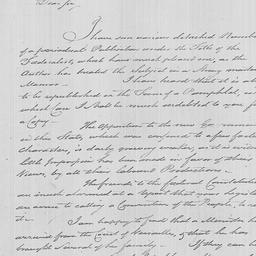 Dear Sir,
I have seen various detached Numbers
of a periodical Publication under the Title of the
Federalist, which have much pleased me, as the
Author has treated the Subject in a Masterly
Manner. I have heard that it is about
to be republished in the Form of a Pamphlet, in
which Case I shall be much indebted to you for
a Copy.
The Opposition to the new Government
in this State, which was confined to a few
Characters, is daily growing weaker, as it is evident
little Impression has been made in favor of their
Views, by all their laboured Productions.
the Federal Constitution
so much alarmed at a Report that our Legislature
are averse to calling a Convention of the People, to
it.
I am happy to find that a Minister has
arrived from the Court of Versailles, & that he has
brought several of his family. If they can be